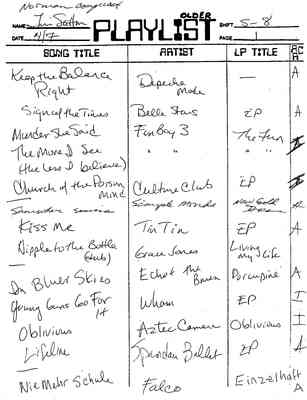 NAME Jim Sutton
OLDER
PLAYLIST
SHIFT 5-8
DATE 4/7
PAGE 1
SONG TITLE ARTIST LP TITLE
Keep the Balance Right Depeche Mode — A
Sign of the Times Belle Stars EP A
Murder She Said Fun Boy 3 The Fun
The More I See (the Less I believe) " " " "
Church of the Poison Mind Culture Club EP
Simple Minds New Gold Dream A
Kiss Me Tin Tin EP A
Nipple to the Bottle (dub) Grace Jones Living my Life
In Bluer Skies Echo & the Bunn Porcupine A
Young Guns Go For It Wham EP I
Oblivious Aztec Camera Oblivious I
Lifeline Spandau Ballet EP A
Nie Mehr Schule Falco Einzelhaft A